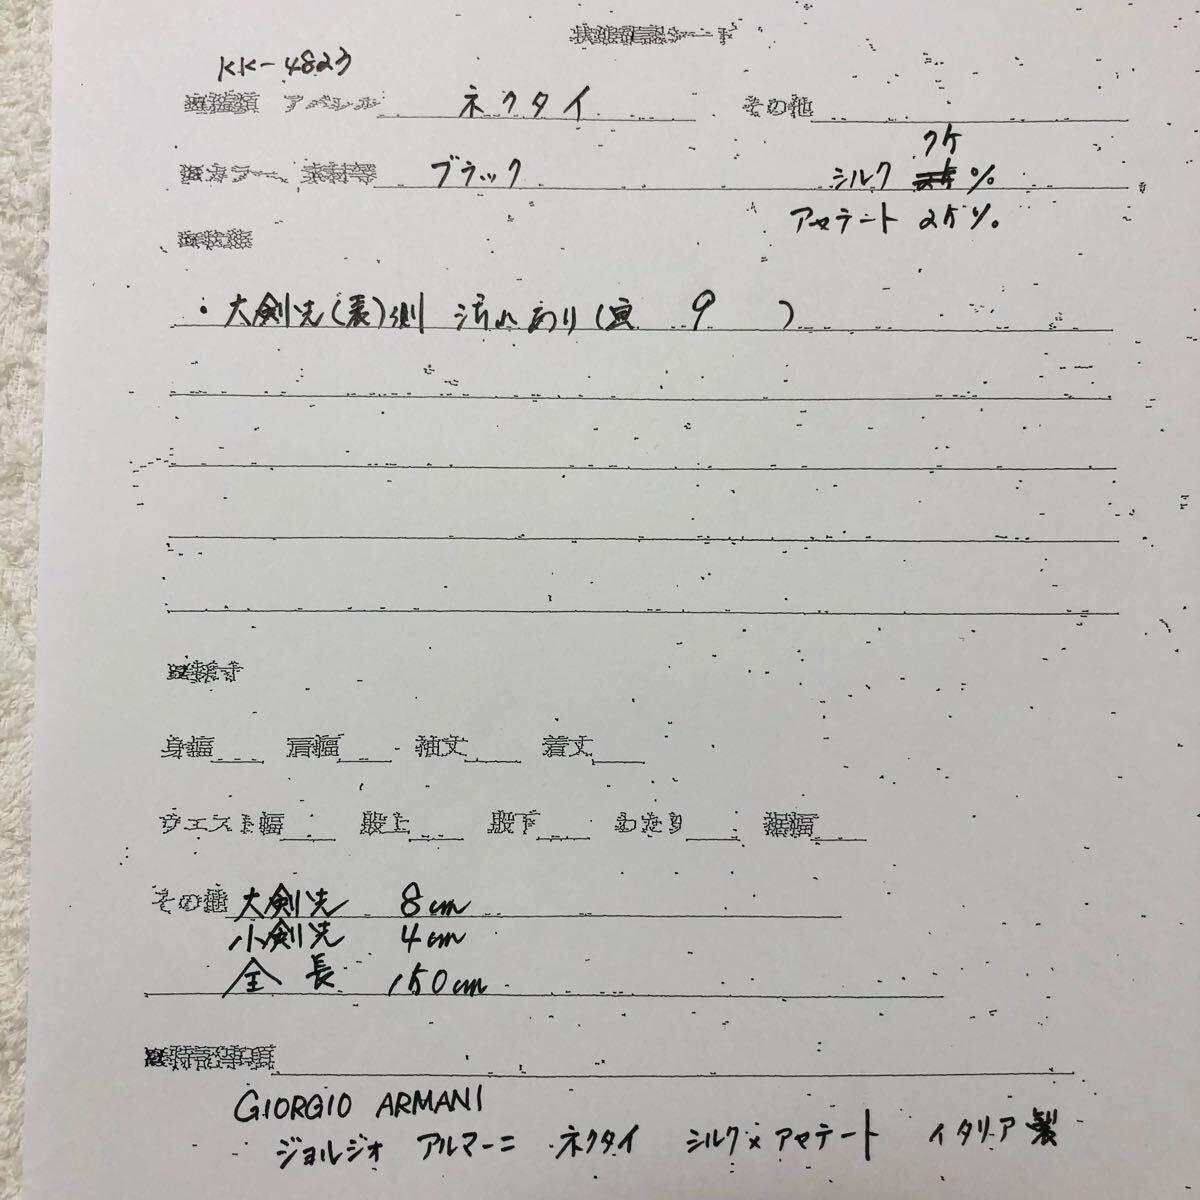 状態確認シート
KK-4823
■種類 アパレル ネクタイ その他
75
■カラー、素材等 ブラック シルク %
アセテート 25%
■状態
・大剣先(表)側 汚れあり(画 9 )
■採寸
身幅 肩幅 袖丈 着丈
ウエスト幅 股上 股下 わたり 裾幅
その他 大剣先 8cm
小剣先 4cm
全長 150cm
■特記事項
GIORGIO ARMANI
ジョルジオ アルマーニ ネクタイ シルク×アセテート イタリア製